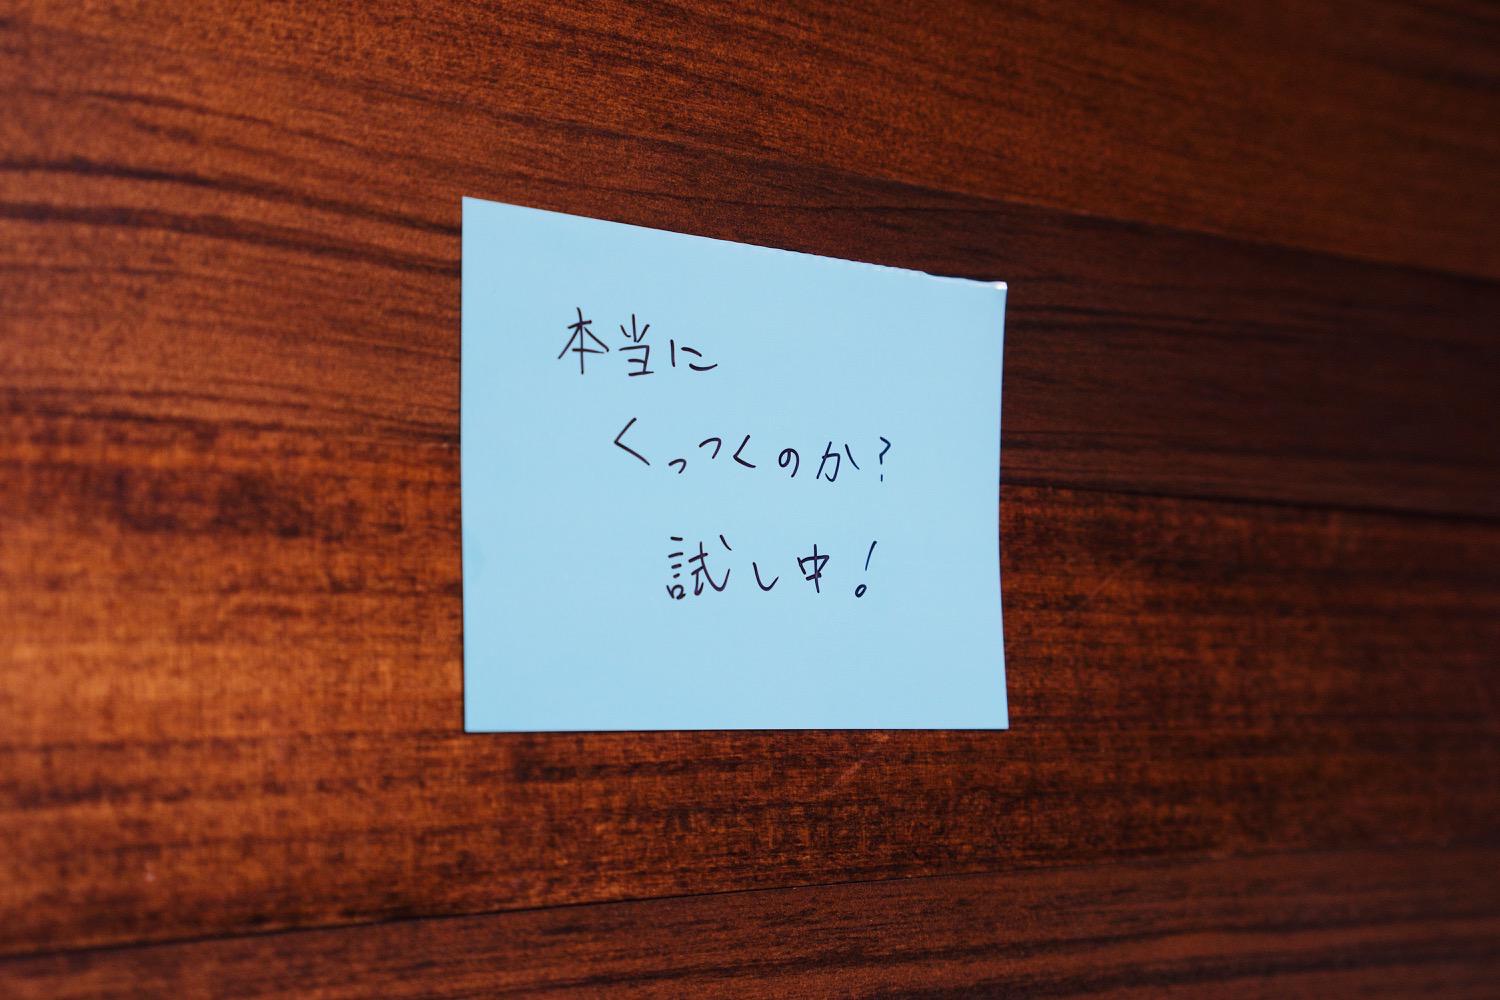 本当に
くっつくのか?
試し中!